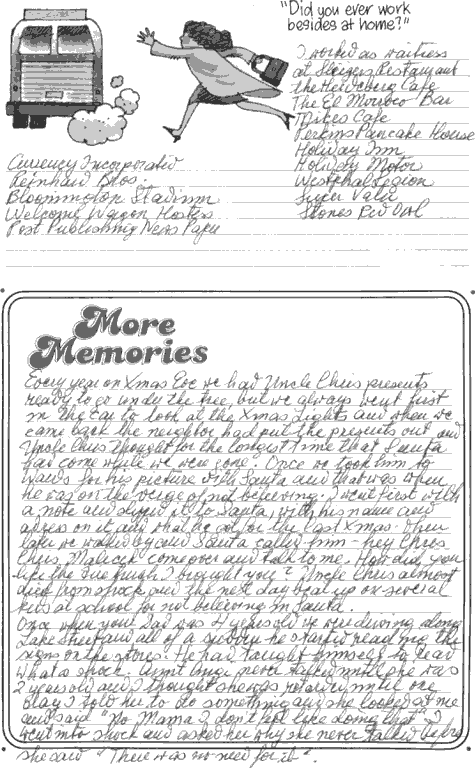 "Did you ever work
besides at home?"
I worked as waitress
at Restaurant
the Heidelberg Cafe
The El Morroco Bar
Mikes Cafe
Perkins Pancake House
Holiday Inn
Holiday Motor
Westphal Legion
Super Valu
Stones Red Owl
Currency Incorporated
Reinhard Bros.
Bloomington Stadium
Welcome Wagon Hostess
Post Publishing News Paper
More
Memories
Every year on Xmas Eve we had Uncle Chris presents
ready to go under the tree, but we always went first
in the car to look at the Xmas lights and when we
came back the neighbor had put the presents out and
Uncle Chris thought for the longest time that Santa
had come while we were gone. Once we took him to
for his picture with Santa and that was when
he was on the verge of not believing. I went first with
a note and slipped it to Santa, with his name and
address on it and what he got for the last Xmas. Then
later we walked by and Santa called him - hey Chris
Chris come over and talk to me. How did you
like the I brought you? Uncle Chris almost
died from shock and the next day beat up on several
kids at school for not believing in Santa.
Once when your Dad was 4 years old we were driving along
Lake Street and all of a sudden he started reading the
signs on the stores. He had taught himself to read
what a shock. Aunt Angie never talked until she was
2 years old and I thought she was retarded until one
day I told her to do something and she looked at me
and said "No Mama I don't feel like doing that" I
went into shock and asked her why she never talked before
she said "There was no need for it".